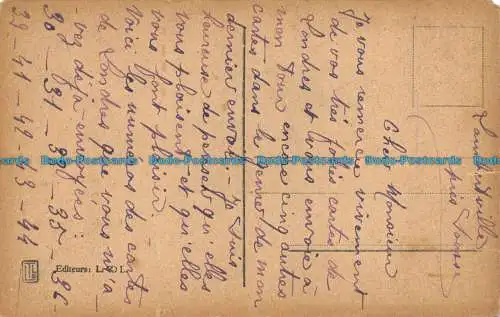 Cher Monsieur
Je vous remercie vivement
de vos très jolies cartes de
Londres et vous envoie à
mon tour encore cinq autres
cartes dans le genre de mon
dernier envoi. Je suis
heureuse de penser qu'elles
vous plaisent et qu'elles
vous font plaisir.
Voici les numéros des cartes
de Londres que vous m'a-
vez déjà envoyées:
30 - 31 - 32 - 35 - 36
39 - 41 - 49 - 43 - 44
Editeurs: L. L.
Bodo-Postcards Bodo-Postcards Bodo-Postcards Bodo-Postcards Bodo-Postcards